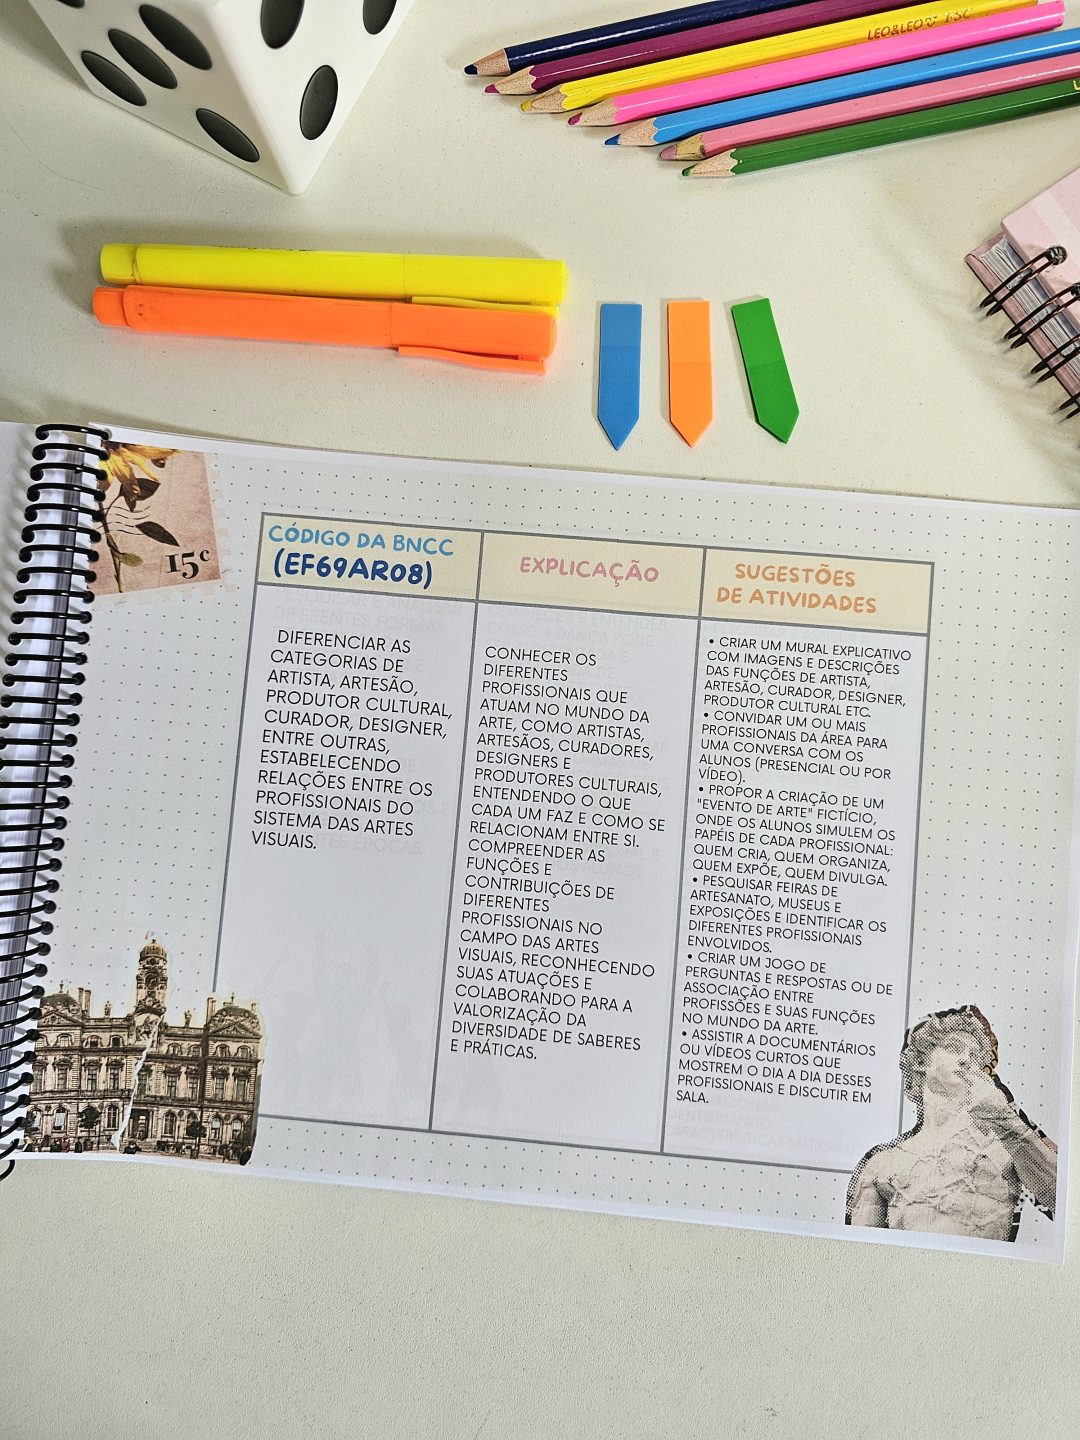 LEO&LEO
15c
CÓDIGO DA BNCC
(EF69AR08)
EXPLICAÇÃO
SUGESTÕES
DE ATIVIDADES
DIFERENCIAR AS
CATEGORIAS DE
ARTISTA, ARTESÃO,
PRODUTOR CULTURAL,
CURADOR, DESIGNER,
ENTRE OUTRAS,
ESTABELECENDO
RELAÇÕES ENTRE OS
PROFISSIONAIS DO
SISTEMA DAS ARTES
VISUAIS.
CONHECER OS
DIFERENTES
PROFISSIONAIS QUE
ATUAM NO MUNDO DA
ARTE, COMO ARTISTAS,
ARTESÃOS, CURADORES,
DESIGNERS E
PRODUTORES CULTURAIS,
ENTENDENDO O QUE
CADA UM FAZ E COMO SE
RELACIONAM ENTRE SI.
COMPREENDER AS
FUNÇÕES E
CONTRIBUIÇÕES DE
DIFERENTES
PROFISSIONAIS NO
CAMPO DAS ARTES
VISUAIS, RECONHECENDO
SUAS ATUAÇÕES E
COLABORANDO PARA A
VALORIZAÇÃO DA
DIVERSIDADE DE SABERES
E PRÁTICAS.
• CRIAR UM MURAL EXPLICATIVO
COM IMAGENS E DESCRIÇÕES
DAS FUNÇÕES DE ARTISTA,
ARTESÃO, CURADOR, DESIGNER,
PRODUTOR CULTURAL ETC.
• CONVIDAR UM OU MAIS
PROFISSIONAIS DA ÁREA PARA
UMA CONVERSA COM OS
ALUNOS (PRESENCIAL OU POR
VÍDEO).
• PROPOR A CRIAÇÃO DE UM
"EVENTO DE ARTE" FICTÍCIO,
ONDE OS ALUNOS SIMULEM OS
PAPÉIS DE CADA PROFISSIONAL:
QUEM CRIA, QUEM ORGANIZA,
QUEM EXPÕE, QUEM DIVULGA.
• PESQUISAR FEIRAS DE
ARTESANATO, MUSEUS E
EXPOSIÇÕES E IDENTIFICAR OS
DIFERENTES PROFISSIONAIS
ENVOLVIDOS.
• CRIAR UM JOGO DE
PERGUNTAS E RESPOSTAS OU DE
ASSOCIAÇÃO ENTRE
PROFISSÕES E SUAS FUNÇÕES
NO MUNDO DA ARTE.
• ASSISTIR A DOCUMENTÁRIOS
OU VÍDEOS CURTOS QUE
MOSTREM O DIA A DIA DESSES
PROFISSIONAIS E DISCUTIR EM
SALA.